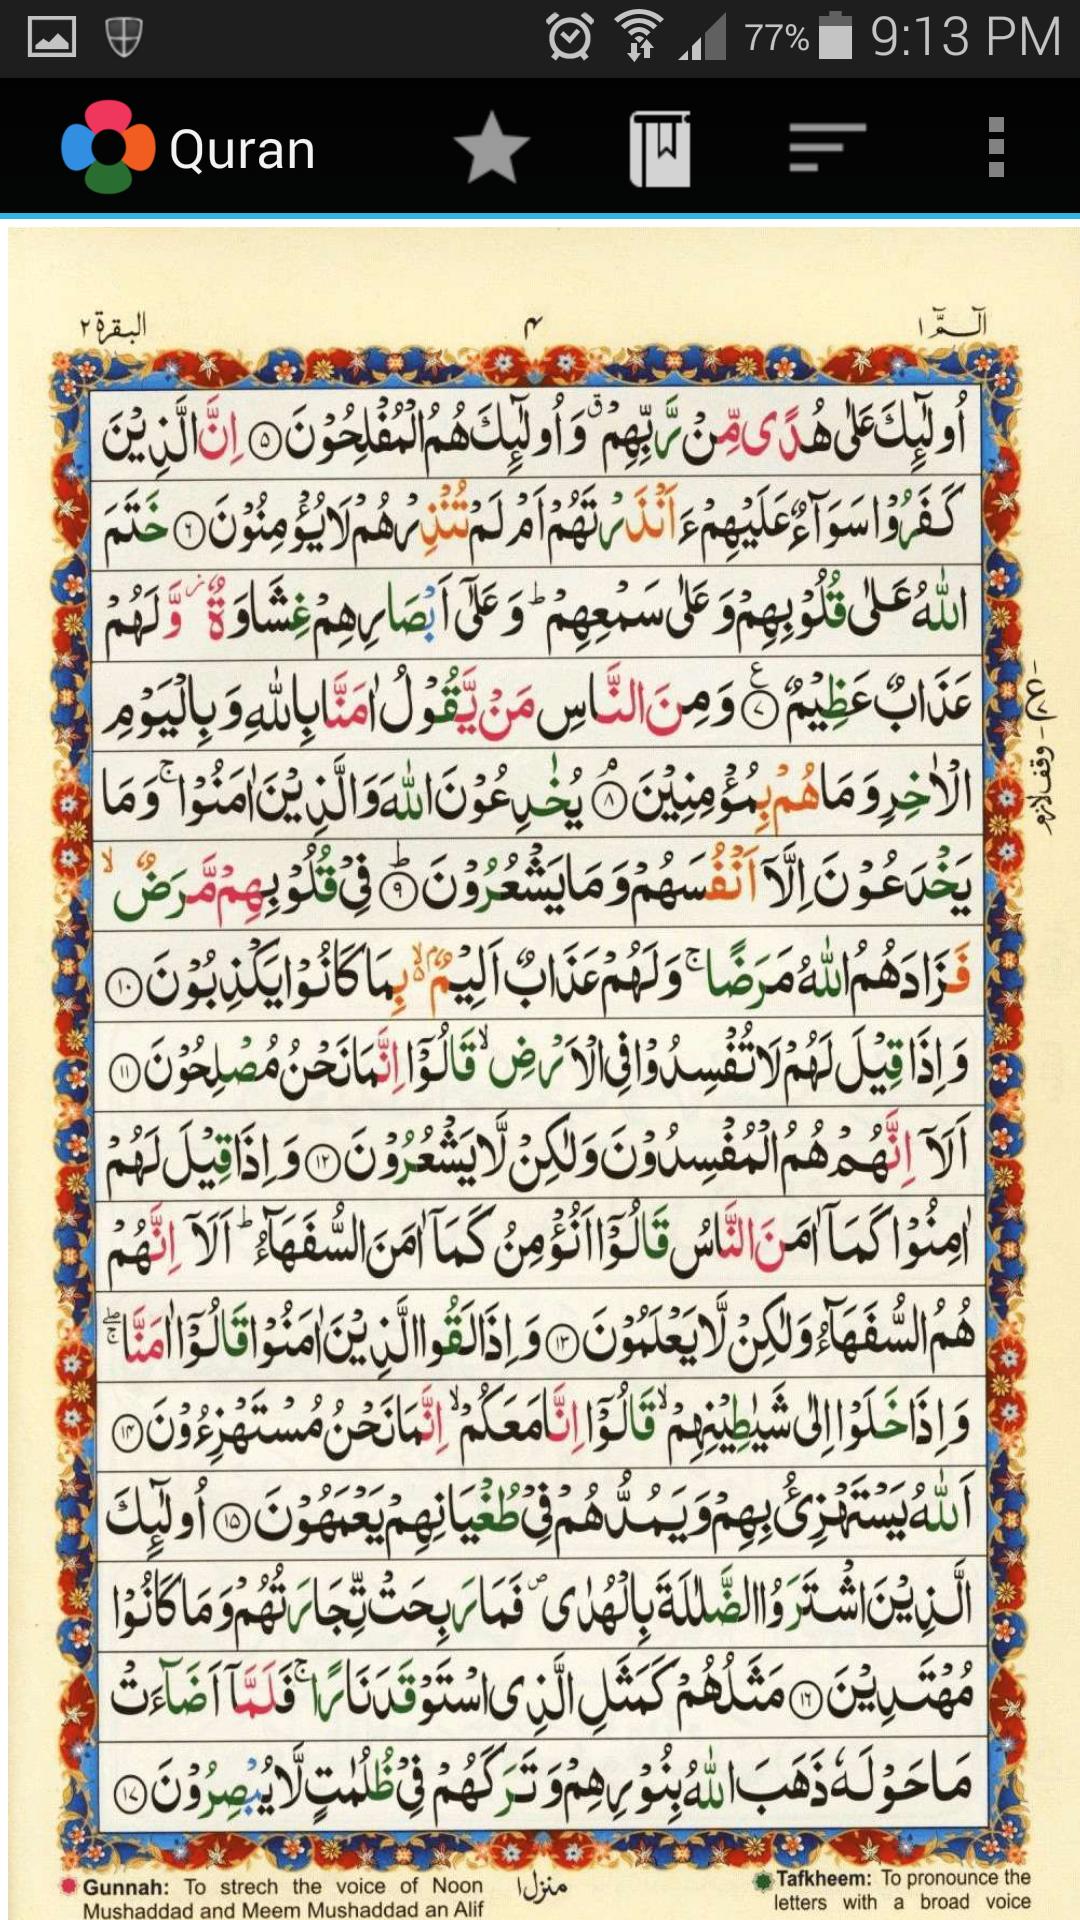 77% 9:13 PM
Quran
الٓـمّٓ ١
۴
البقرة ٢
اُولٰٓئِكَ عَلٰى هُدًى مِّنْ رَّبِّهِمْ ۗ وَاُولٰٓئِكَ هُمُ الْمُفْلِحُوْنَ ۝۵ اِنَّ الَّذِيْنَ
كَفَرُوْا سَوَآءٌ عَلَيْهِمْ ءَاَنْذَرْتَهُمْ اَمْ لَمْ تُنْذِرْهُمْ لَا يُؤْمِنُوْنَ ۝۶ خَتَمَ
اللّٰهُ عَلٰى قُلُوْبِهِمْ وَعَلٰى سَمْعِهِمْ ؕ وَعَلٰٓى اَبْصَارِهِمْ غِشَاوَةٌ ز وَّلَهُمْ
عَذَابٌ عَظِيْمٌ ۝۷ ع وَمِنَ النَّاسِ مَنْ يَّقُوْلُ اٰمَنَّا بِاللّٰهِ وَبِالْيَوْمِ
ع
الْاٰخِرِ وَمَا هُمْ بِمُؤْمِنِيْنَ ۝۸ۘ يُخٰدِعُوْنَ اللّٰهَ وَالَّذِيْنَ اٰمَنُوْا ۚ وَمَا
وقف لازم
يَخْدَعُوْنَ اِلَّآ اَنْفُسَهُمْ وَمَا يَشْعُرُوْنَ ۝۹ؕ فِيْ قُلُوْبِهِمْ مَّرَضٌ ۙ
فَزَادَهُمُ اللّٰهُ مَرَضًا ۚ وَلَهُمْ عَذَابٌ اَلِيْمٌ ۢ ۙ بِمَا كَانُوْا يَكْذِبُوْنَ ۝۱۰
وَاِذَا قِيْلَ لَهُمْ لَا تُفْسِدُوْا فِى الْاَرْضِ ۙ قَالُوْٓا اِنَّمَا نَحْنُ مُصْلِحُوْنَ ۝۱۱
اَلَآ اِنَّهُمْ هُمُ الْمُفْسِدُوْنَ وَلٰكِنْ لَّا يَشْعُرُوْنَ ۝۱۲ وَاِذَا قِيْلَ لَهُمْ
اٰمِنُوْا كَمَآ اٰمَنَ النَّاسُ قَالُوْٓا اَنُؤْمِنُ كَمَآ اٰمَنَ السُّفَهَآءُ ؕ اَلَآ اِنَّهُمْ
هُمُ السُّفَهَآءُ وَلٰكِنْ لَّا يَعْلَمُوْنَ ۝۱۳ وَاِذَا لَقُوا الَّذِيْنَ اٰمَنُوْا قَالُوْٓا اٰمَنَّا ۖۚ
وَاِذَا خَلَوْا اِلٰى شَيٰطِيْنِهِمْ ۙ قَالُوْٓا اِنَّا مَعَكُمْ ۙ اِنَّمَا نَحْنُ مُسْتَهْزِءُوْنَ ۝۱۴
اَللّٰهُ يَسْتَهْزِئُ بِهِمْ وَيَمُدُّهُمْ فِيْ طُغْيَانِهِمْ يَعْمَهُوْنَ ۝۱۵ اُولٰٓئِكَ
الَّذِيْنَ اشْتَرَوُا الضَّلٰلَةَ بِالْهُدٰى ص فَمَا رَبِحَتْ تِّجَارَتُهُمْ وَمَا كَانُوْا
مُهْتَدِيْنَ ۝۱۶ مَثَلُهُمْ كَمَثَلِ الَّذِى اسْتَوْقَدَ نَارًا ۚ فَلَمَّآ اَضَآءَتْ
مَا حَوْلَهٗ ذَهَبَ اللّٰهُ بِنُوْرِهِمْ وَتَرَكَهُمْ فِيْ ظُلُمٰتٍ لَّا يُبْصِرُوْنَ ۝۱۷
منزل ١
Gunnah: To strech the voice of Noon
Mushaddad and Meem Mushaddad an Alif
Tafkheem: To pronounce the
letters with a broad voice